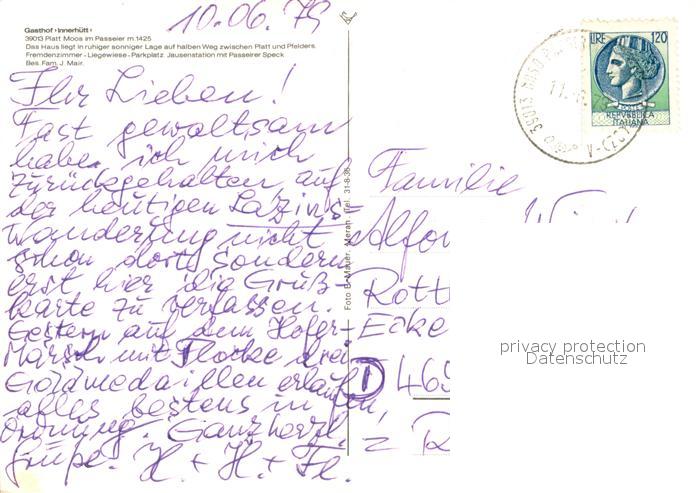 10.06.79
Gasthof ›Innerhütt‹
39013 Platt Moos im Passeier m.1425
Das Haus liegt in ruhiger sonniger Lage auf halben Weg zwischen Platt und Pfelders.
Fremdenzimmer - Liegewiese - Parkplatz Jausenstation mit Passeirer Speck
Bes. Fam. J. Mair.
Ihr Lieben!
Fast gewaltsam
habe ich mich
zurückgehalten auf
der heutigen Lazins-
Wanderung nicht
schon dort sondern
erst hier die Gruß-
karte zu verfassen.
Gestern auf dem Hofer-
Marsch mit Flocke drei
Goldmedaillen erlaufen,
alles bestens in
Ordnung. Ganz herzl.
Grüße. H. + H. + Fl.
Foto B. Mauer, Meran, Tel. 31-8-36
LIRE 120
REPVBBLICA
ITALIANA
39013
Familie
Alfo
Rott
Ecke
D 465
privacy protection
Datenschutz